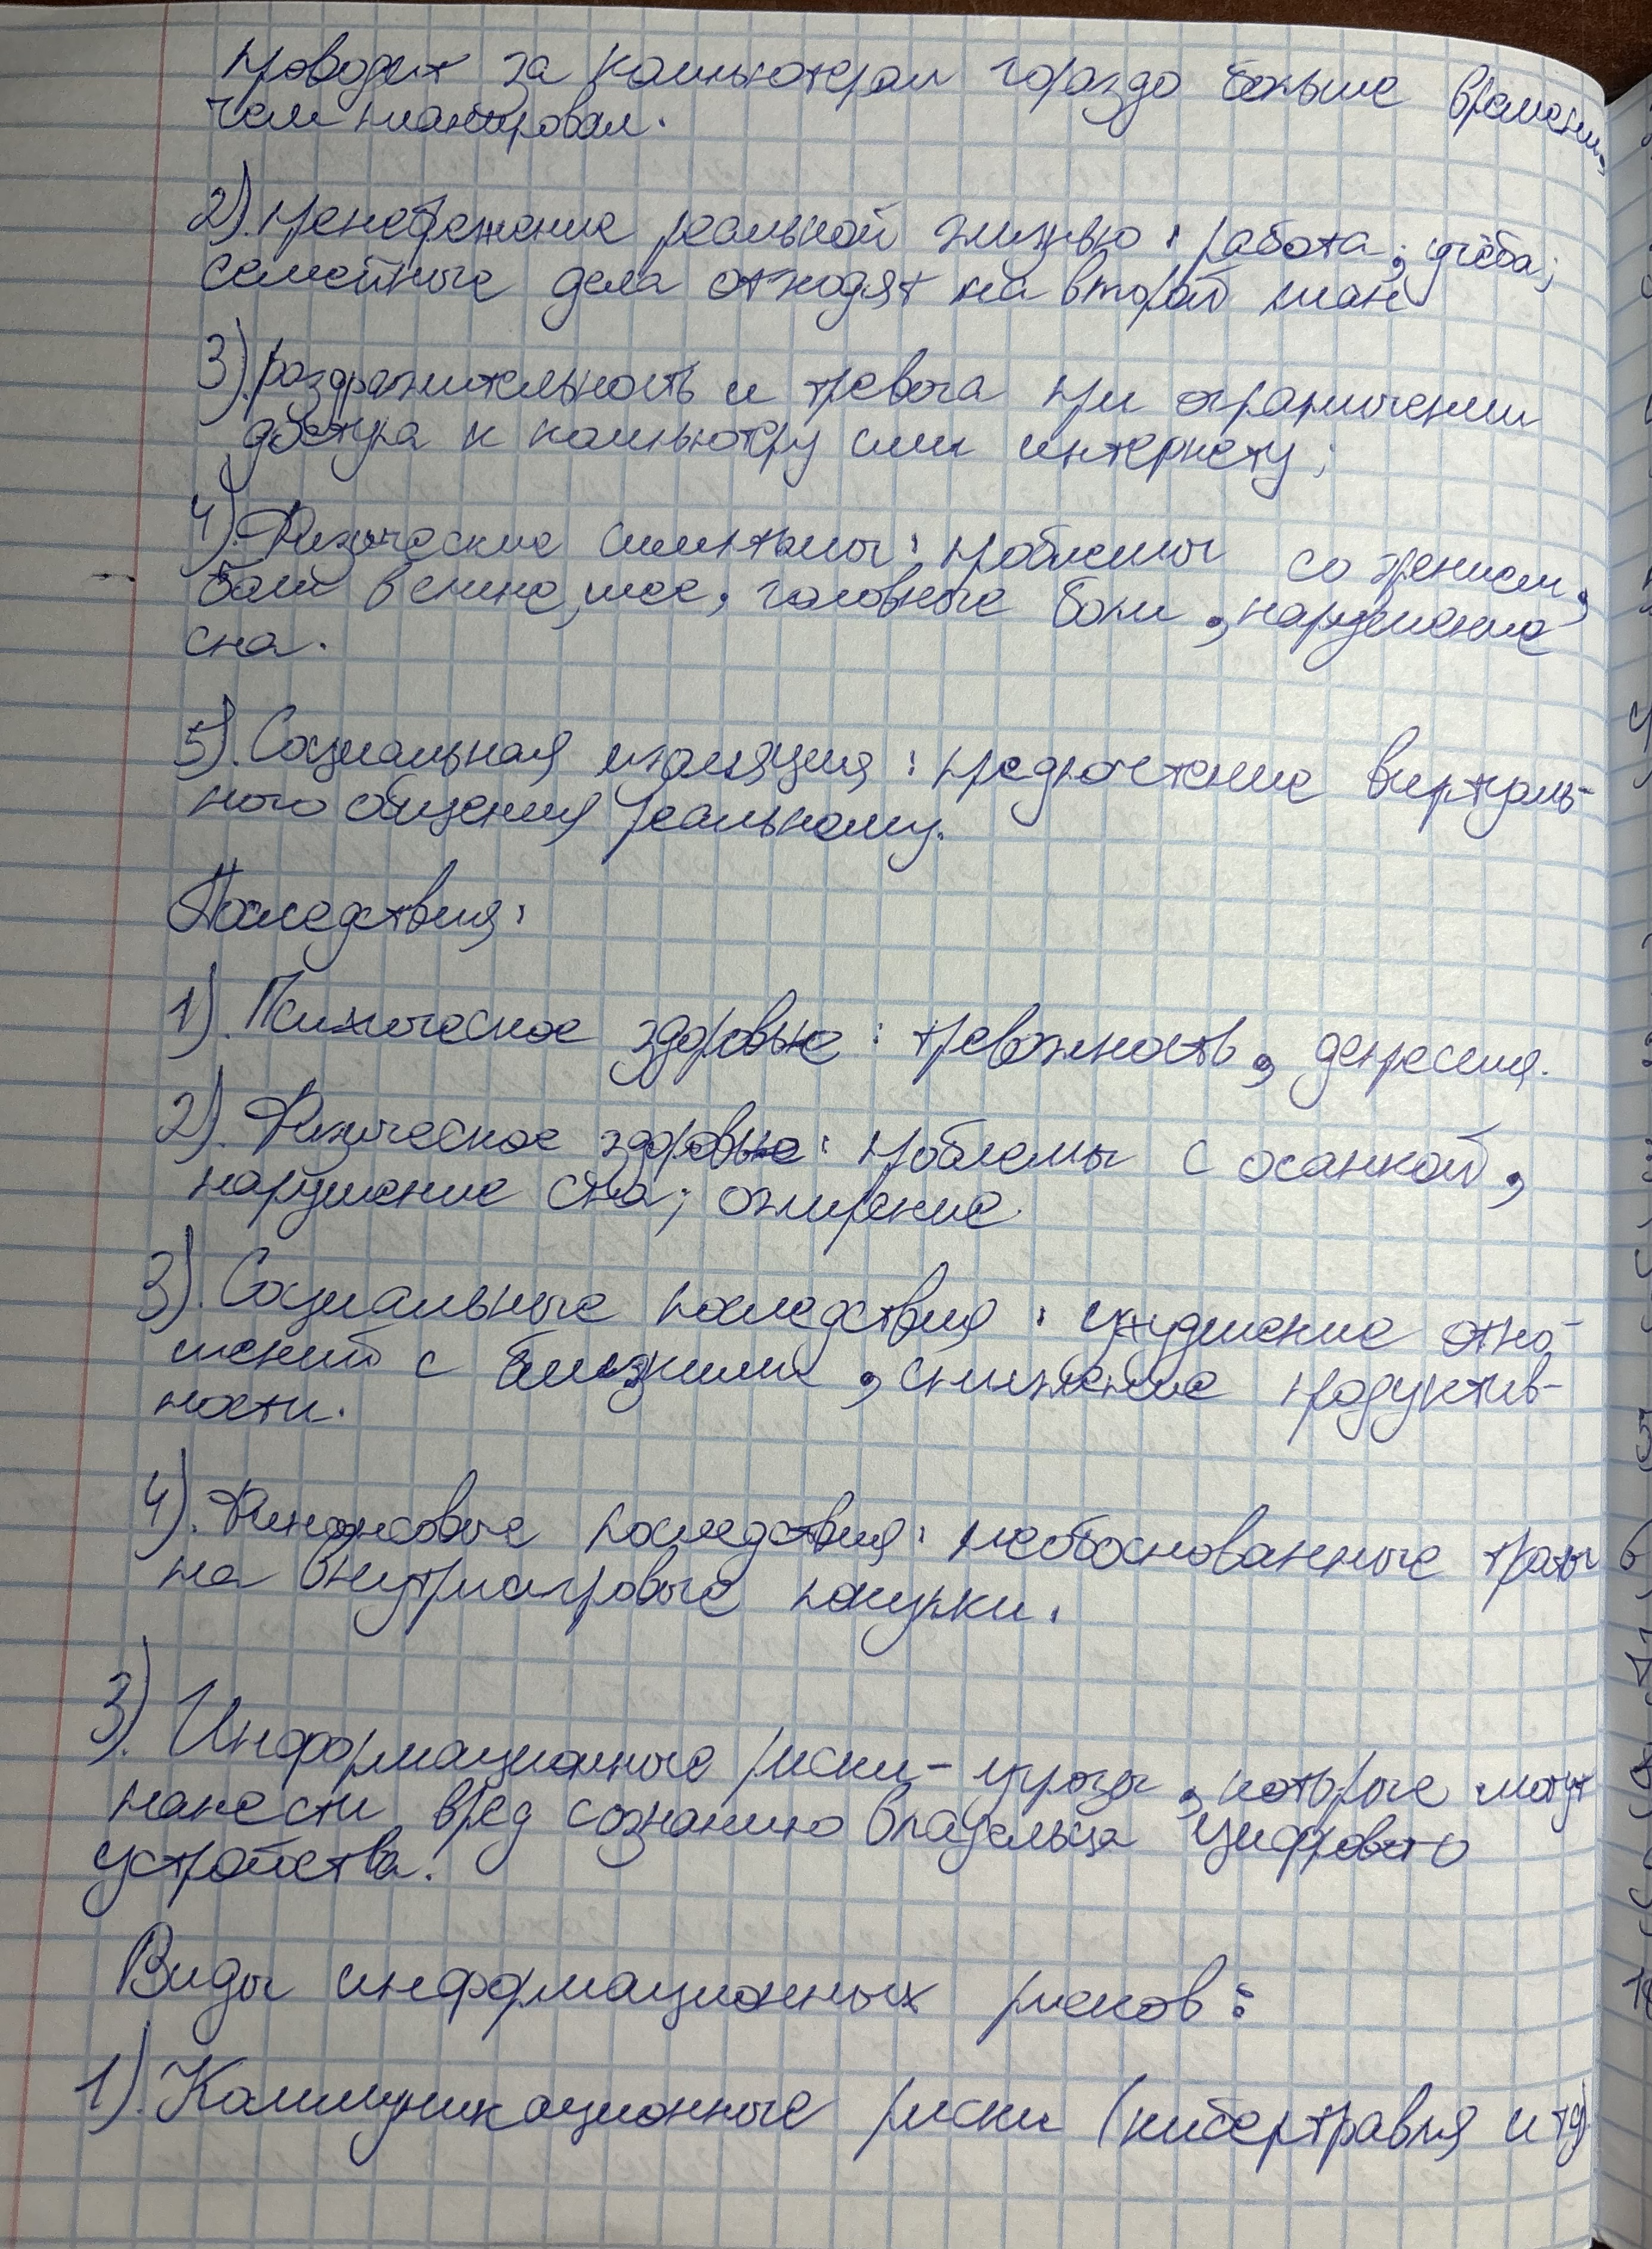 проводит за компьютером гораздо больше времени,
чем планировал.
2). пренебрежение реальной жизнью: работа; учёба;
семейные дела отходят на второй план
3). раздражительность и тревога при ограничении
доступа к компьютеру или интернету;
4). Физические симптомы: проблемы со зрением,
боли в спине, шее, головные боли, нарушение
сна.
5). Социальная изоляция: предпочтение виртуаль-
ного общения реальному.
Последствия:
1). Психическое здоровье: тревожность, депрессия.
2). Физическое здоровье: проблемы с осанкой,
нарушение сна; ожирение.
3). Социальные последствия: ухудшение отно-
шений с близкими, снижение продуктив-
ности.
4). Финансовые последствия: необоснованные траты
на внутриигровые покупки.
3). Информационные риски - угрозы, которые могут
нанести вред сознанию владельца цифрового
устройства.
Виды информационных рисков:
1). Коммуникационные риски (кибертравля и тд)